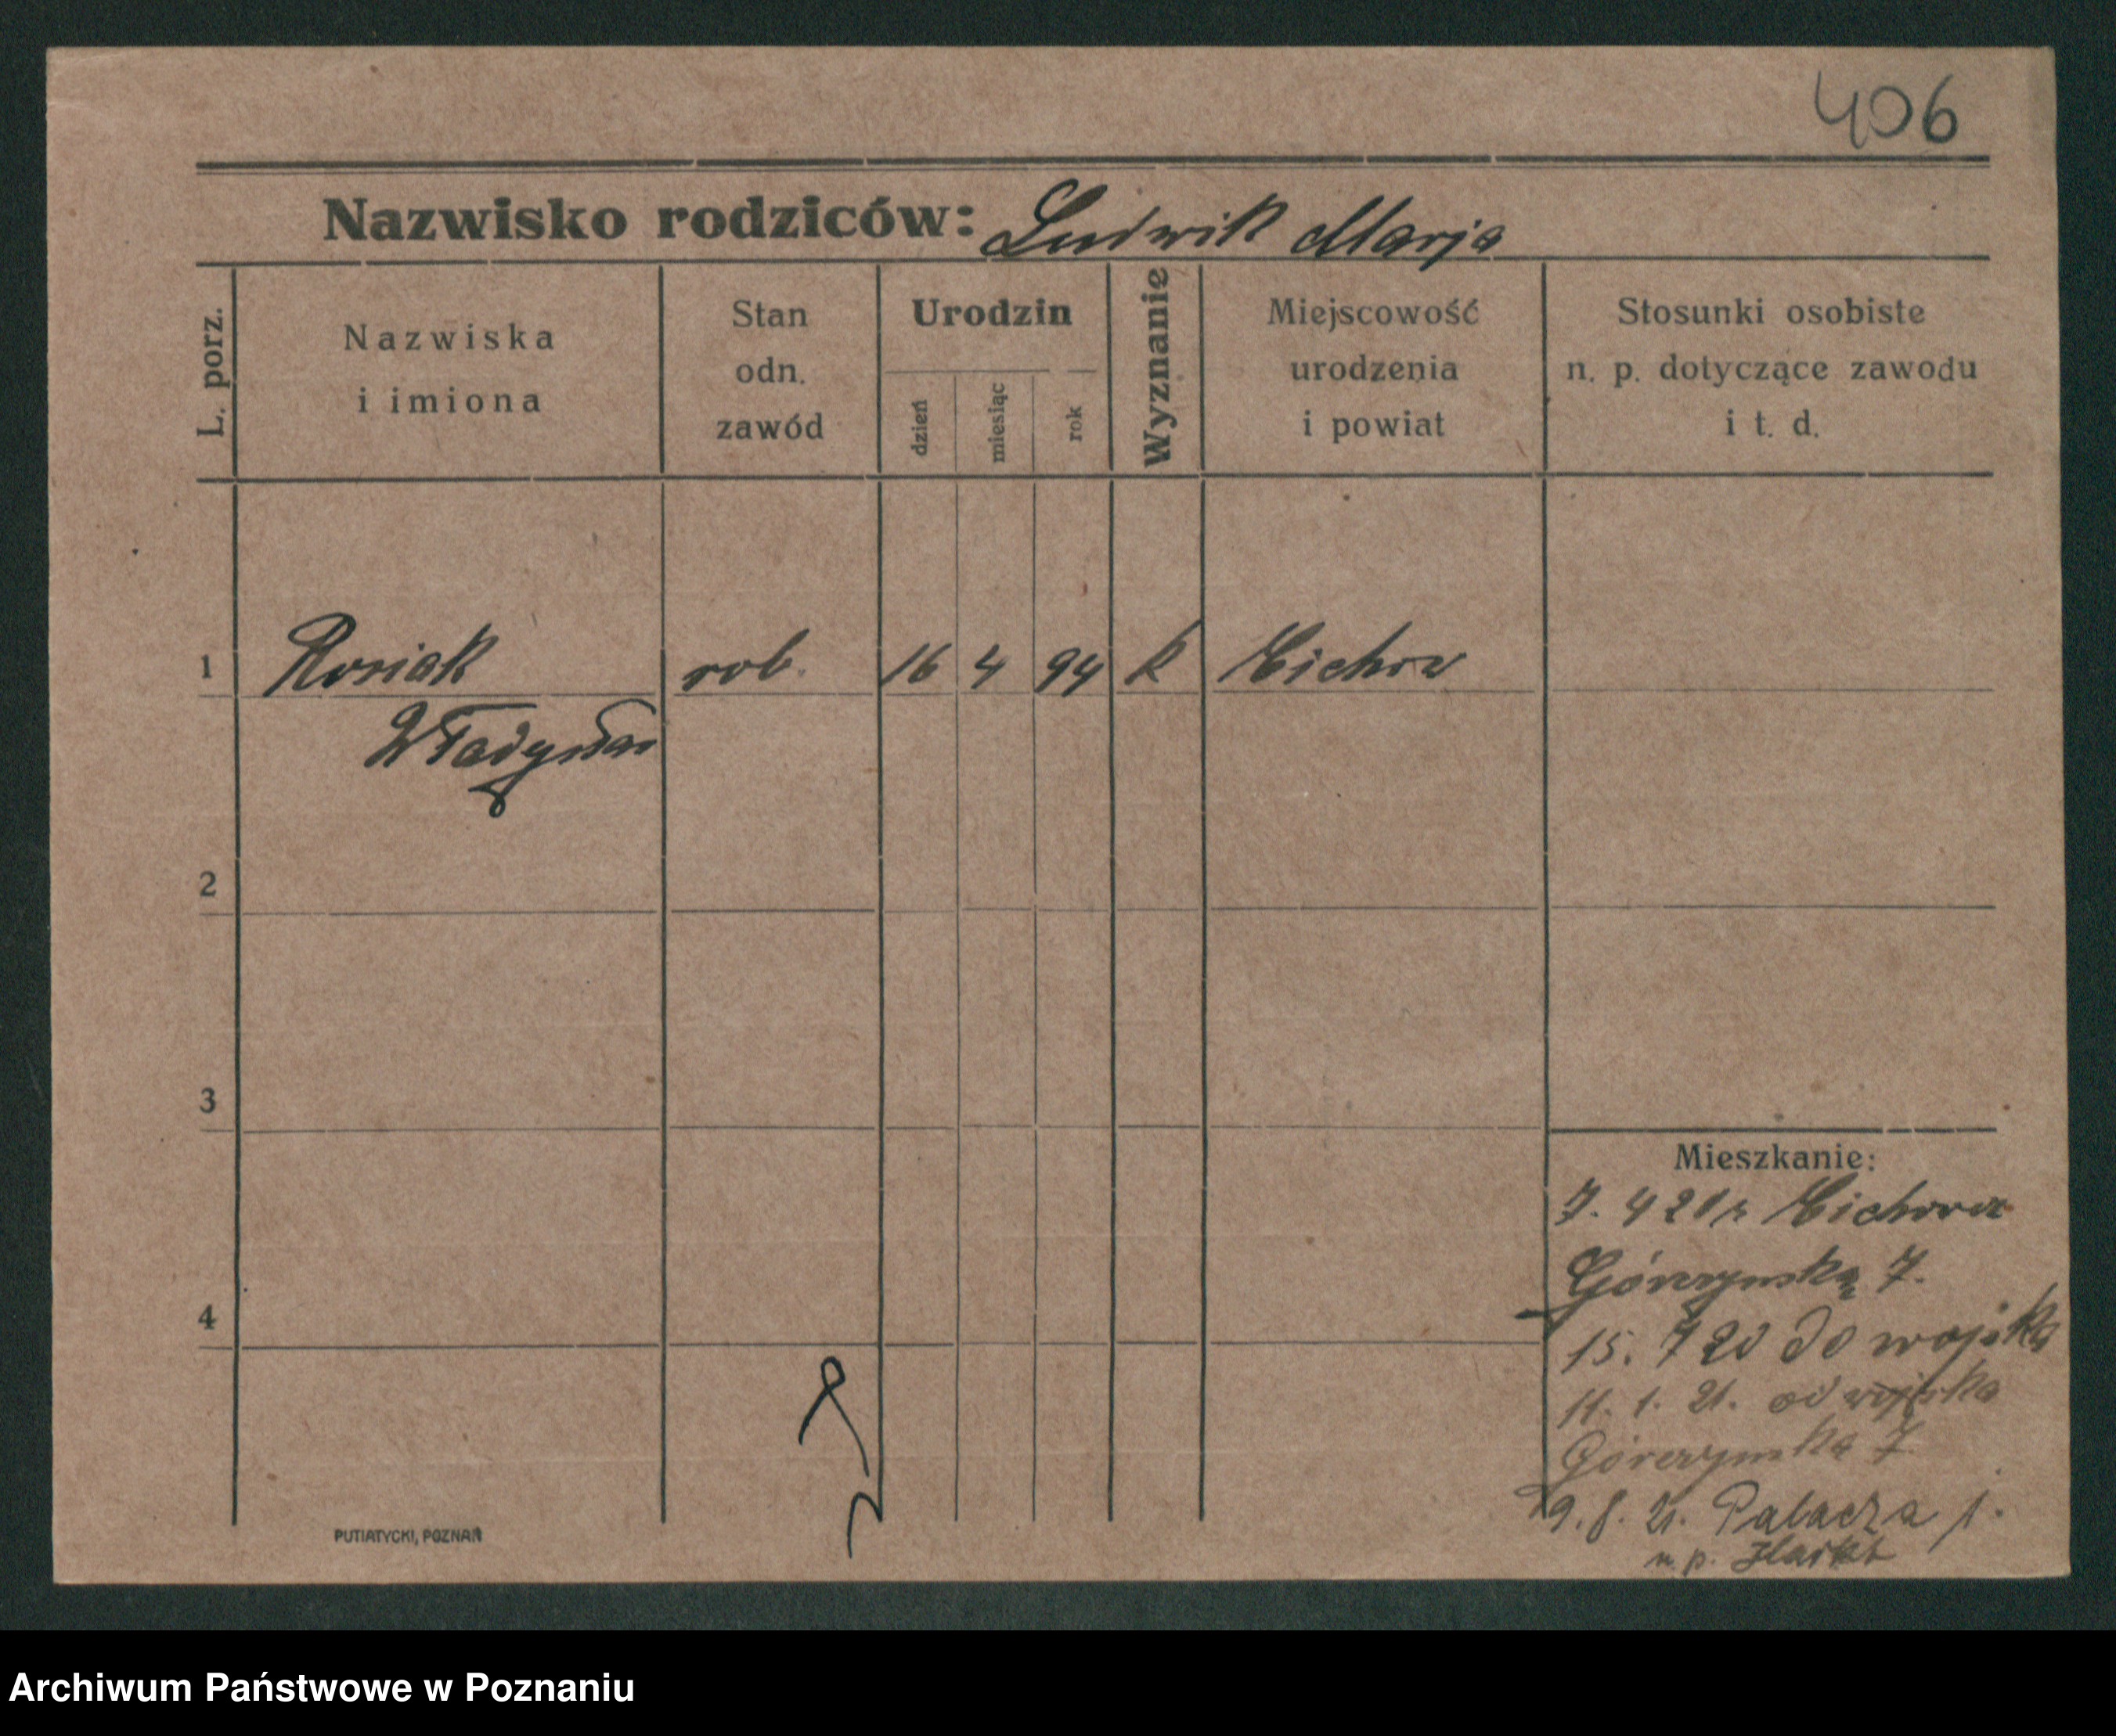 406
Nazwisko rodziców: Ludwik Marja
L. porz.
Nazwiska
i imiona
Stan
odn.
zawód
Urodzin
dzień
miesiąc
rok
Wyznanie
Miejscowość
urodzenia
i powiat
Stosunki osobiste
n. p. dotyczące zawodu
i t. d.
1 Rosiak rob. 16 4 94 k
Władysław
2
3
4
Mieszkanie:
7. 4
Górczyńska 7.
15. 7 20 do wojska
11. 1. 21. od wojska
Górczyńska 7
9. 8. 21. Palacza 1.
u p.
PUTIATYCKI, POZNAŃ
Archiwum Państwowe w Poznaniu